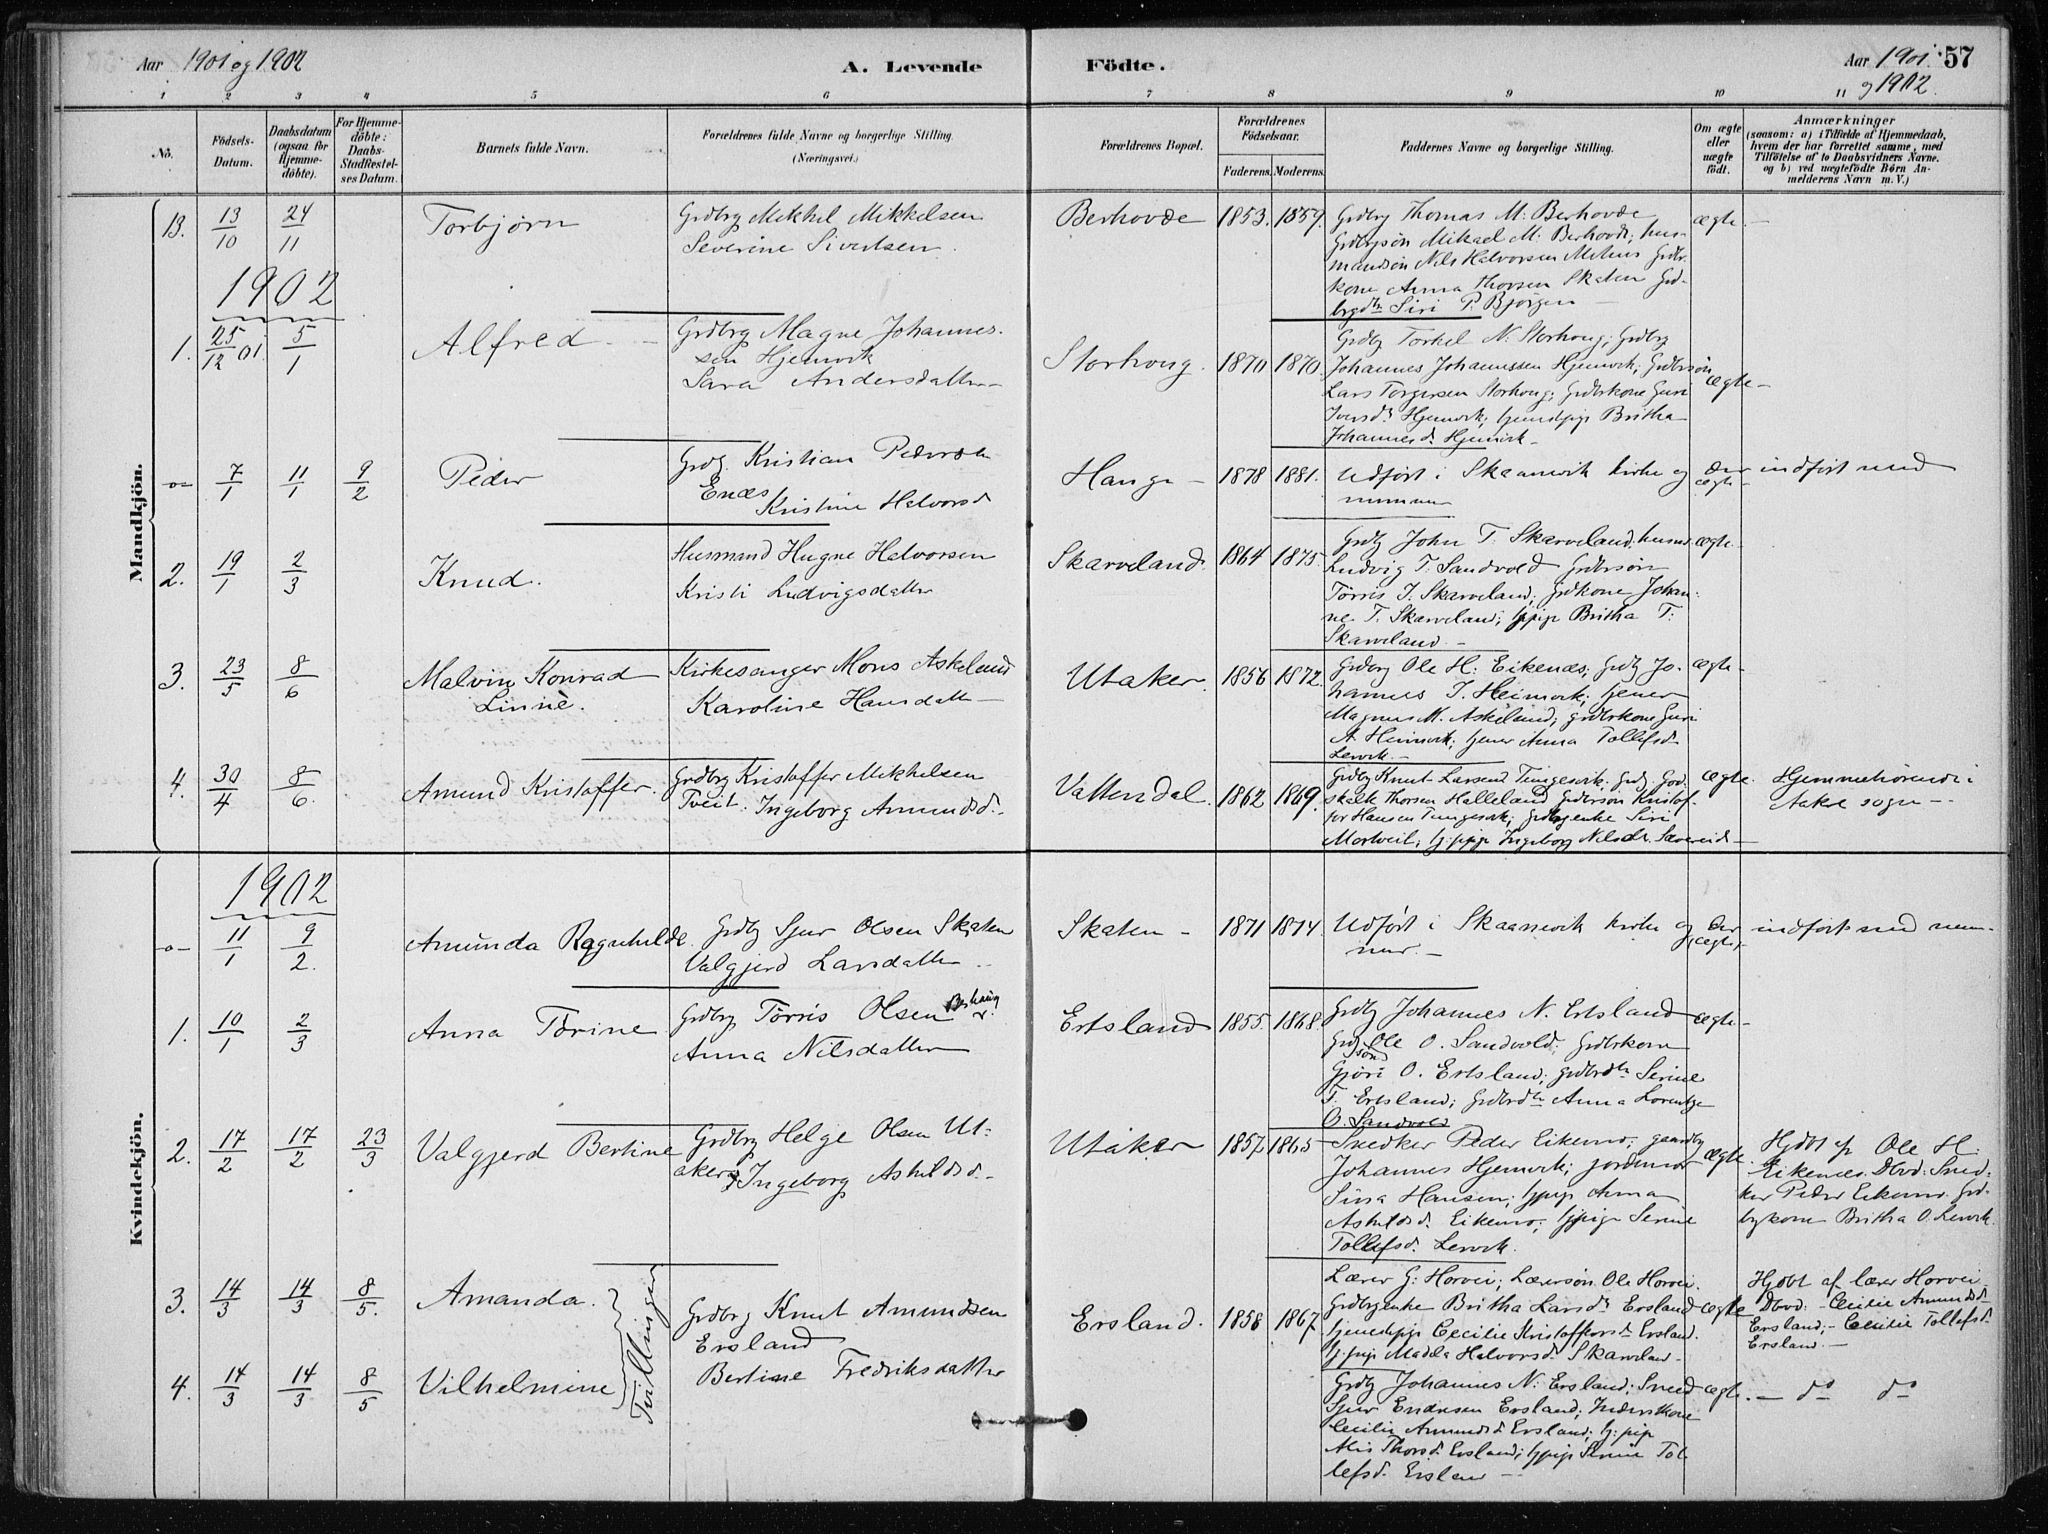 Aar 1901 og 1902
A. Levende Födte.
Aar 1901 57
og 1902.
1 2 3 4 5 6 7 8 9 10 11
No. Födsels-Datum. Daabsdatum (ogsaa for Hjemmedöbte). For Hjemmedöbte: Daabs-Stadfæstelses Datum. Barnets fulde Navn. Forældrenes fulde Navne og borgerlige Stilling. (Næringsvei.) Forældrenes Bopæl. Forældrenes Födselsaar. Faderens. Moderens. Faddernes Navne og borgerlige Stilling. Om ægte eller uægte födt. Anmærkninger (saasom: a) i Tilfælde af Hjemmedaab, hvem der har forrettet samme, med Tilföielse af to Daabsvidners Navne. og b) ved uægtefödte Börn Anmelderens Navn m. V.)
Mandkjön.
13. 13/10 24/11 Torbjørn
Grdbrg Mikkel Mikkelsen
Severine Sivertsen.
Berhovde 1853. 1859.
Grdbrg Thomas M. Berhovde
Grdbrgsøn Mikael M. Berhovde; hus-
mandsøn Nils Halvorsen Grdbr-
kone Anna Thorsen Skaten Grd-
brgdtr Siri P. Bjørgen –
ægte. –
1902
1. 25/12 01. 5/1 Alfred –
Grdbrg Magne Johannes-
sen Hjemvik
Sara Andersdatter –
Storhoug. 1870 1870.
Grdbg Torkel N. Storhoug; Grdbrg
Johannes Johannessen Hjemvik; Grdbrsøn
Lars Torgersen Storhoug; Grdbrkone Guri
Iversdr Hjemvik; tjenestpige Britha
Johannesd. Hjemvik –
ægte –
o– 7/1 11/1 9/2 Peder
Grdbg. Kristian Pedersen
Enæs
Kristine Halvorsd
Hauge – 1878 1881.
Udført i Skaanevik kirke og der indført med
nummer
ægte –
2. 19/1 2/3 Knud.
Husmand Hugne Halvorsen
Kristi Ludvigsdatter
Skarveland. 1864 1875.
Grdbg John T. Skarveland; husm
Ludvig T. Sandvold Grdbrsøn
Tørris J. Skarveland; Grdkone Johan-
ne T. Skarveland; tjpige Britha T.
Skarveland. –
ægte –
3. 23/5 8/6 Malvin Konrad
Linnè.
Kirkesanger Mons Askeland
Karoline Hansdatter –
Utaker. 1856 1872.
Grdbrg Ole H. Eikenæs; Grdbg Jo-
hannes J. Heimvik; tjener
Magnus M. Askeland; grdbrkone Guri
A. Heimvik; tjener Anna Tollefsd.
Lervik –
ægte –
4. 30/4 8/6. Amund Kristoffer.
Grdbrg Kristoffer Mikkelsen
Tveit. Ingeborg Amundsd. –
Vattendal. 1862 1869.
Grdbg Knut Larsen Tungesvik; Grdbg. God-
skalk Thorsen Halleland Grdbrsøn Kristof-
fer Hansen Tungesvik; grdbrgenke Siri
Mortveit; tj. pige Ingeborg Nilsdr. Sævereide –
ægte.
Hjemmehørende i
Aakre sogn –
Kvindekjön.
1902
o– 11/1 9/2. Amunda Ragnhilde.
Grdbg Sjur Olsen Skaten
Valgjerd Larsdatter –
Skaten – 1871 1874.
Udført i Skaanevik kirke og der indført med num-
mer. –
ægte –
1. 10/1 2/3 Anna Tørine
Grdbrg Tørris Olsen Berhaug
Anna Nilsdatter
Ertsland 1855. 1868.
Grdbg Johannes N. Ertsland
Grdbgsøn Ole O. Sandvold. Grdbrkone
Gjøri O. Ertsland; grdbrdtr Serine
T. Ertsland; Grdbrdtr Anna Lorentze
O. Sandvold
ægte –
2. 17/2 17/2 23/3 Valgjerd Bertine
Grdbrg Helge Olsen Ut-
aker, Ingeborg Askildsd. –
Utåker 1857. 1865
Snedker Peder Eikemo; gaardbg
Johannes Hjemvik; jordemor
Sina Hansen; tjpige Anna
Askildsd. Eikemo; tjpige Serine
Tollefsd. Lervik.
ægte.
Hjdbt af Ole H.
Eikenes. Dbvd: Sned-
ker Peder Eikemo. Grd-
bgkone Britha O. Lervik.
3. 14/3 14/3 8/5. Amanda.
4. 14/3 14/3 8/5 Vilhelmine
Tvillinger
Grdbrg Knut Amundsen
Ersland
Bertine Fredriksdatter
Ersland. 1858 1867.
Lærer G. Horvei; Lærersøn Ole Horvei.
Grdbrgenke Britha Larsdr Ersland
tjenestpige Cecilie Kristoffersd. Ersland.
tj. pige Madela Halvorsd. Skarveland –
ægte
Hjdbt af lærer Horvei
Dbvd: – Cecilie Amundsd
Ersland; – Cecilie Tollefsd.
Ersland. –
Grdbg Johannes N. Ersland; Sned
Sjur Endresen Ersland; Inderstkone
Cecilie Amundsd Ersland; tj: pige
Alis Thorsd. Ersland; tjpige Serine Tol-
lefsd. Ersland –
ægte. – do do